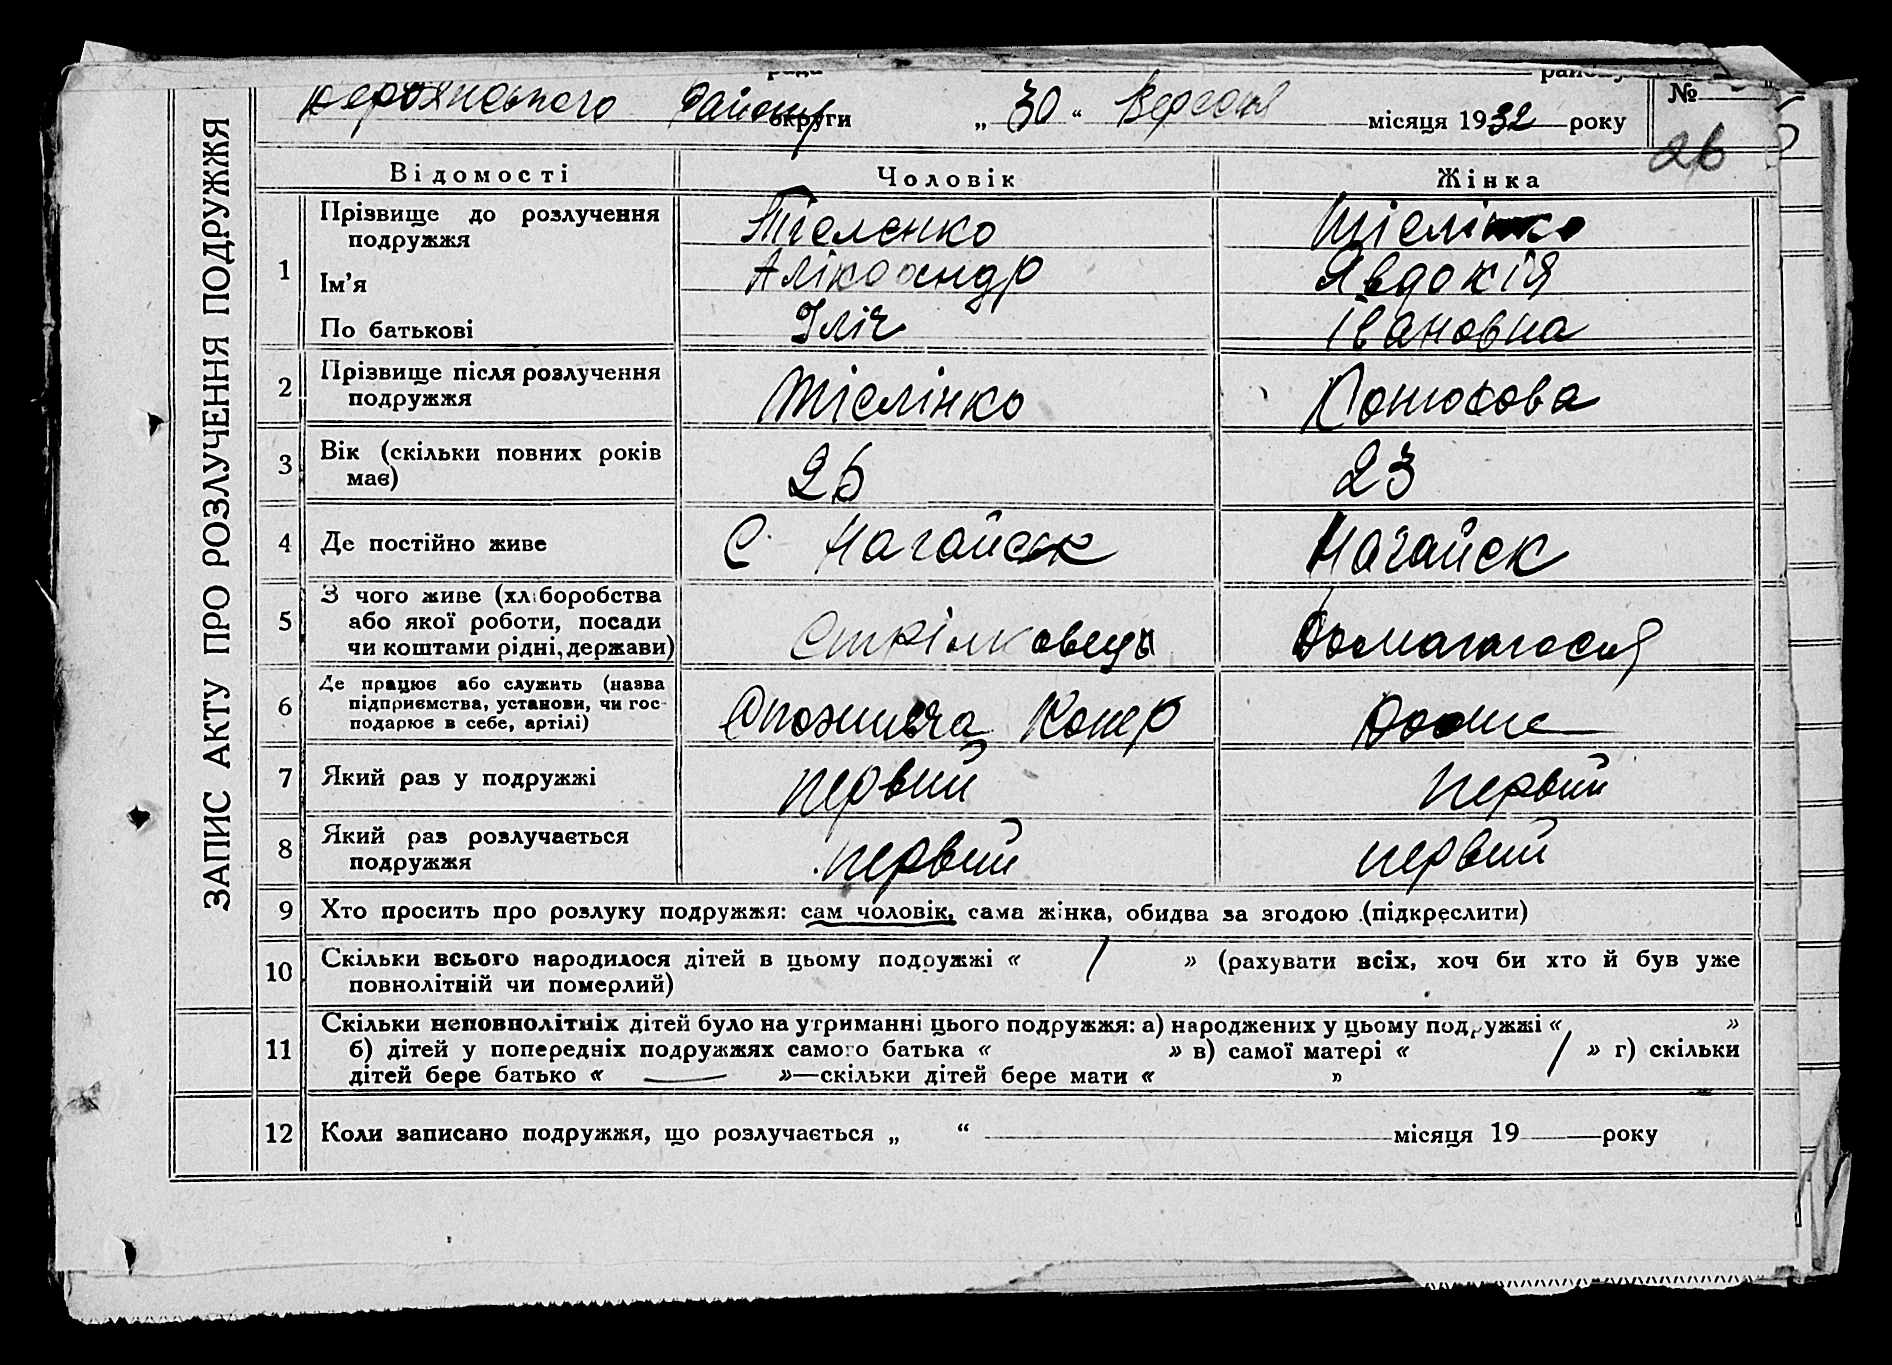 ЗАПИС АКТУ ПРО РОЗЛУЧЕННЯ ПОДРУЖЖЯ
рада району
Бердянського Району округи „ 30 “ Вересня місяця 1932 року №
26
Відомості Чоловік Жінка
1 Прізвище до розлучення подружжя Тієлєнко Тієлінко
Ім’я Аліксандр Явдокія
По батькові Іліч Івановна
2 Прізвище після розлучення подружжя Тієлінко
3 Вік (скільки повних років має) 26 23
4 Де постійно живе С. Нагайск Нагайск
5 З чого живе (хліборобства або якої роботи, посади чи коштами рідні, держави)
6 Де працює або служить (назва підприємства, установи, чи господарює в себе, артілі) Споживча Копер Дома
7 Який раз у подружжі первий первий
8 Який раз розлучається подружжя первий первий
9 Хто просить про розлуку подружжя: сам чоловік, сама жінка, обидва за згодою (підкреслити)
10 Скільки всього народилося дітей в цьому подружжі « / » (рахувати всіх, хоч би хто й був уже
повнолітній чи померлий)
11 Скільки неповнолітніх дітей було на утриманні цього подружжя: а) народжених у цьому подружжі « »
б) дітей у попередніх подружжях самого батька « » в) самої матері « / » г) скільки
дітей бере батько « — »—скільки дітей бере мати « »
12 Коли записано подружжя, що розлучається „ “ місяця 19 року